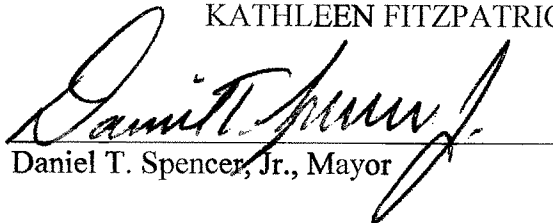 KATHLEEN FITZPATRIC
Daniel T. Spencer, Jr.
Daniel T. Spencer, Jr., Mayor